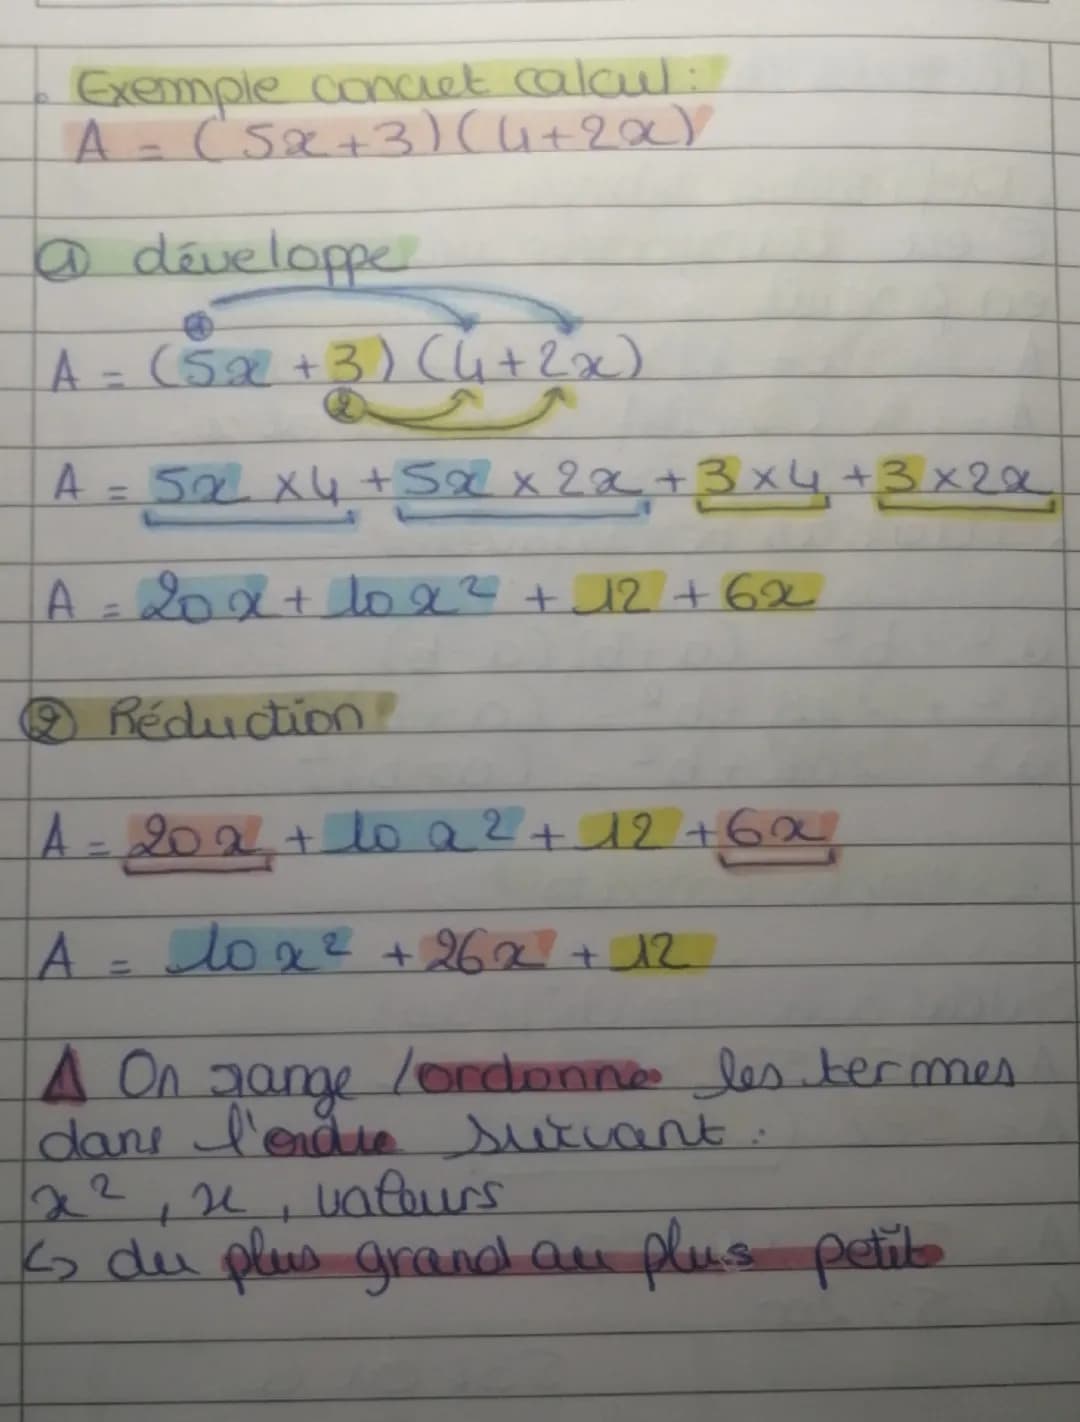 Exemple concret calcul :
A = (5x+3)(4+2x)
① développe
①
A = (5x + 3) (4+2x)
②
A = 5x ×4 + 5x × 2x + 3×4 + 3×2x
A = 20x + 10x² + 12 + 6x
② Réduction
A = 20x + 10x² + 12 + 6x
A = 10x² + 26x + 12
⚠ On range / ordonne les termes
dans l'ordre suivant :
x², x, valeurs
↳ du plus grand au plus petit